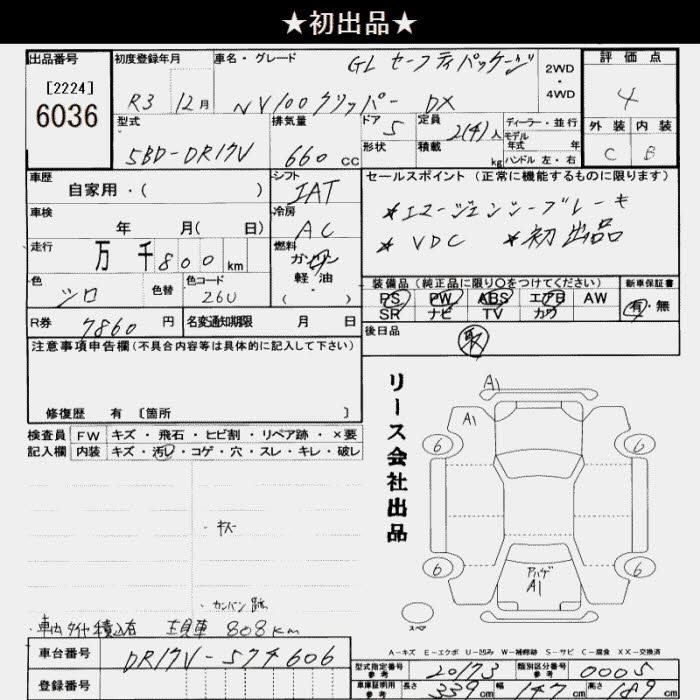 ★初出品★
出品番号
[2224]
6036
初度登録年月
R3 12月
車名・グレード
GL セーフティパッケージ
NV100クリッパー DX
2WD
・
4WD
評価点
4
型式
5BD-DR17V
排気量
660 CC
ドア 5
形状
定員 2(4)人
積載 kg
ディーラー・並行
モデル
年式 年
ハンドル 左・右
外装 内装
C B
車歴
自家用・( )
シフト
IAT
車検
年 月( 日)
冷房
AC
走行
万 千 800 km
燃料
ガソリン
軽・油
( )
色
シロ
色替
色コード
26U
R券
7860 円
名変通知期限 月 日
セールスポイント(正常に機能するものに限ります)
*エマージェンシーブレーキ
* VDC *初出品
装備品(純正品に限り○をつけてください)
PS PW ABS エアB AW
SR ナビ TV カワ
新車保証書
有・無
後日品
注意事項申告欄(不具合内容等は具体的に記入して下さい)
修復歴 有 [箇所 ]
検査員 FW キズ・飛石・ヒビ割・リペア跡・×要
記入欄 内装 キズ・汚レ・コゲ・穴・スレ・キレ・破レ
・キズ
・カンバン跡
車内タイヤ積込有 現車 808km
リース会社出品
A1
A1
6 6
6 6
アハゲ
A1
スペア
A-キズ E-エクボ U-凹み W-補修跡 S-サビ C-腐食 XX-交換済
車台番号
DR17V-574606
登録番号
型式指定番号
参考
20173
類別区分番号
参考
0005
車庫証明用
参考
長さ 339 cm 幅 147 cm 高さ 189 cm